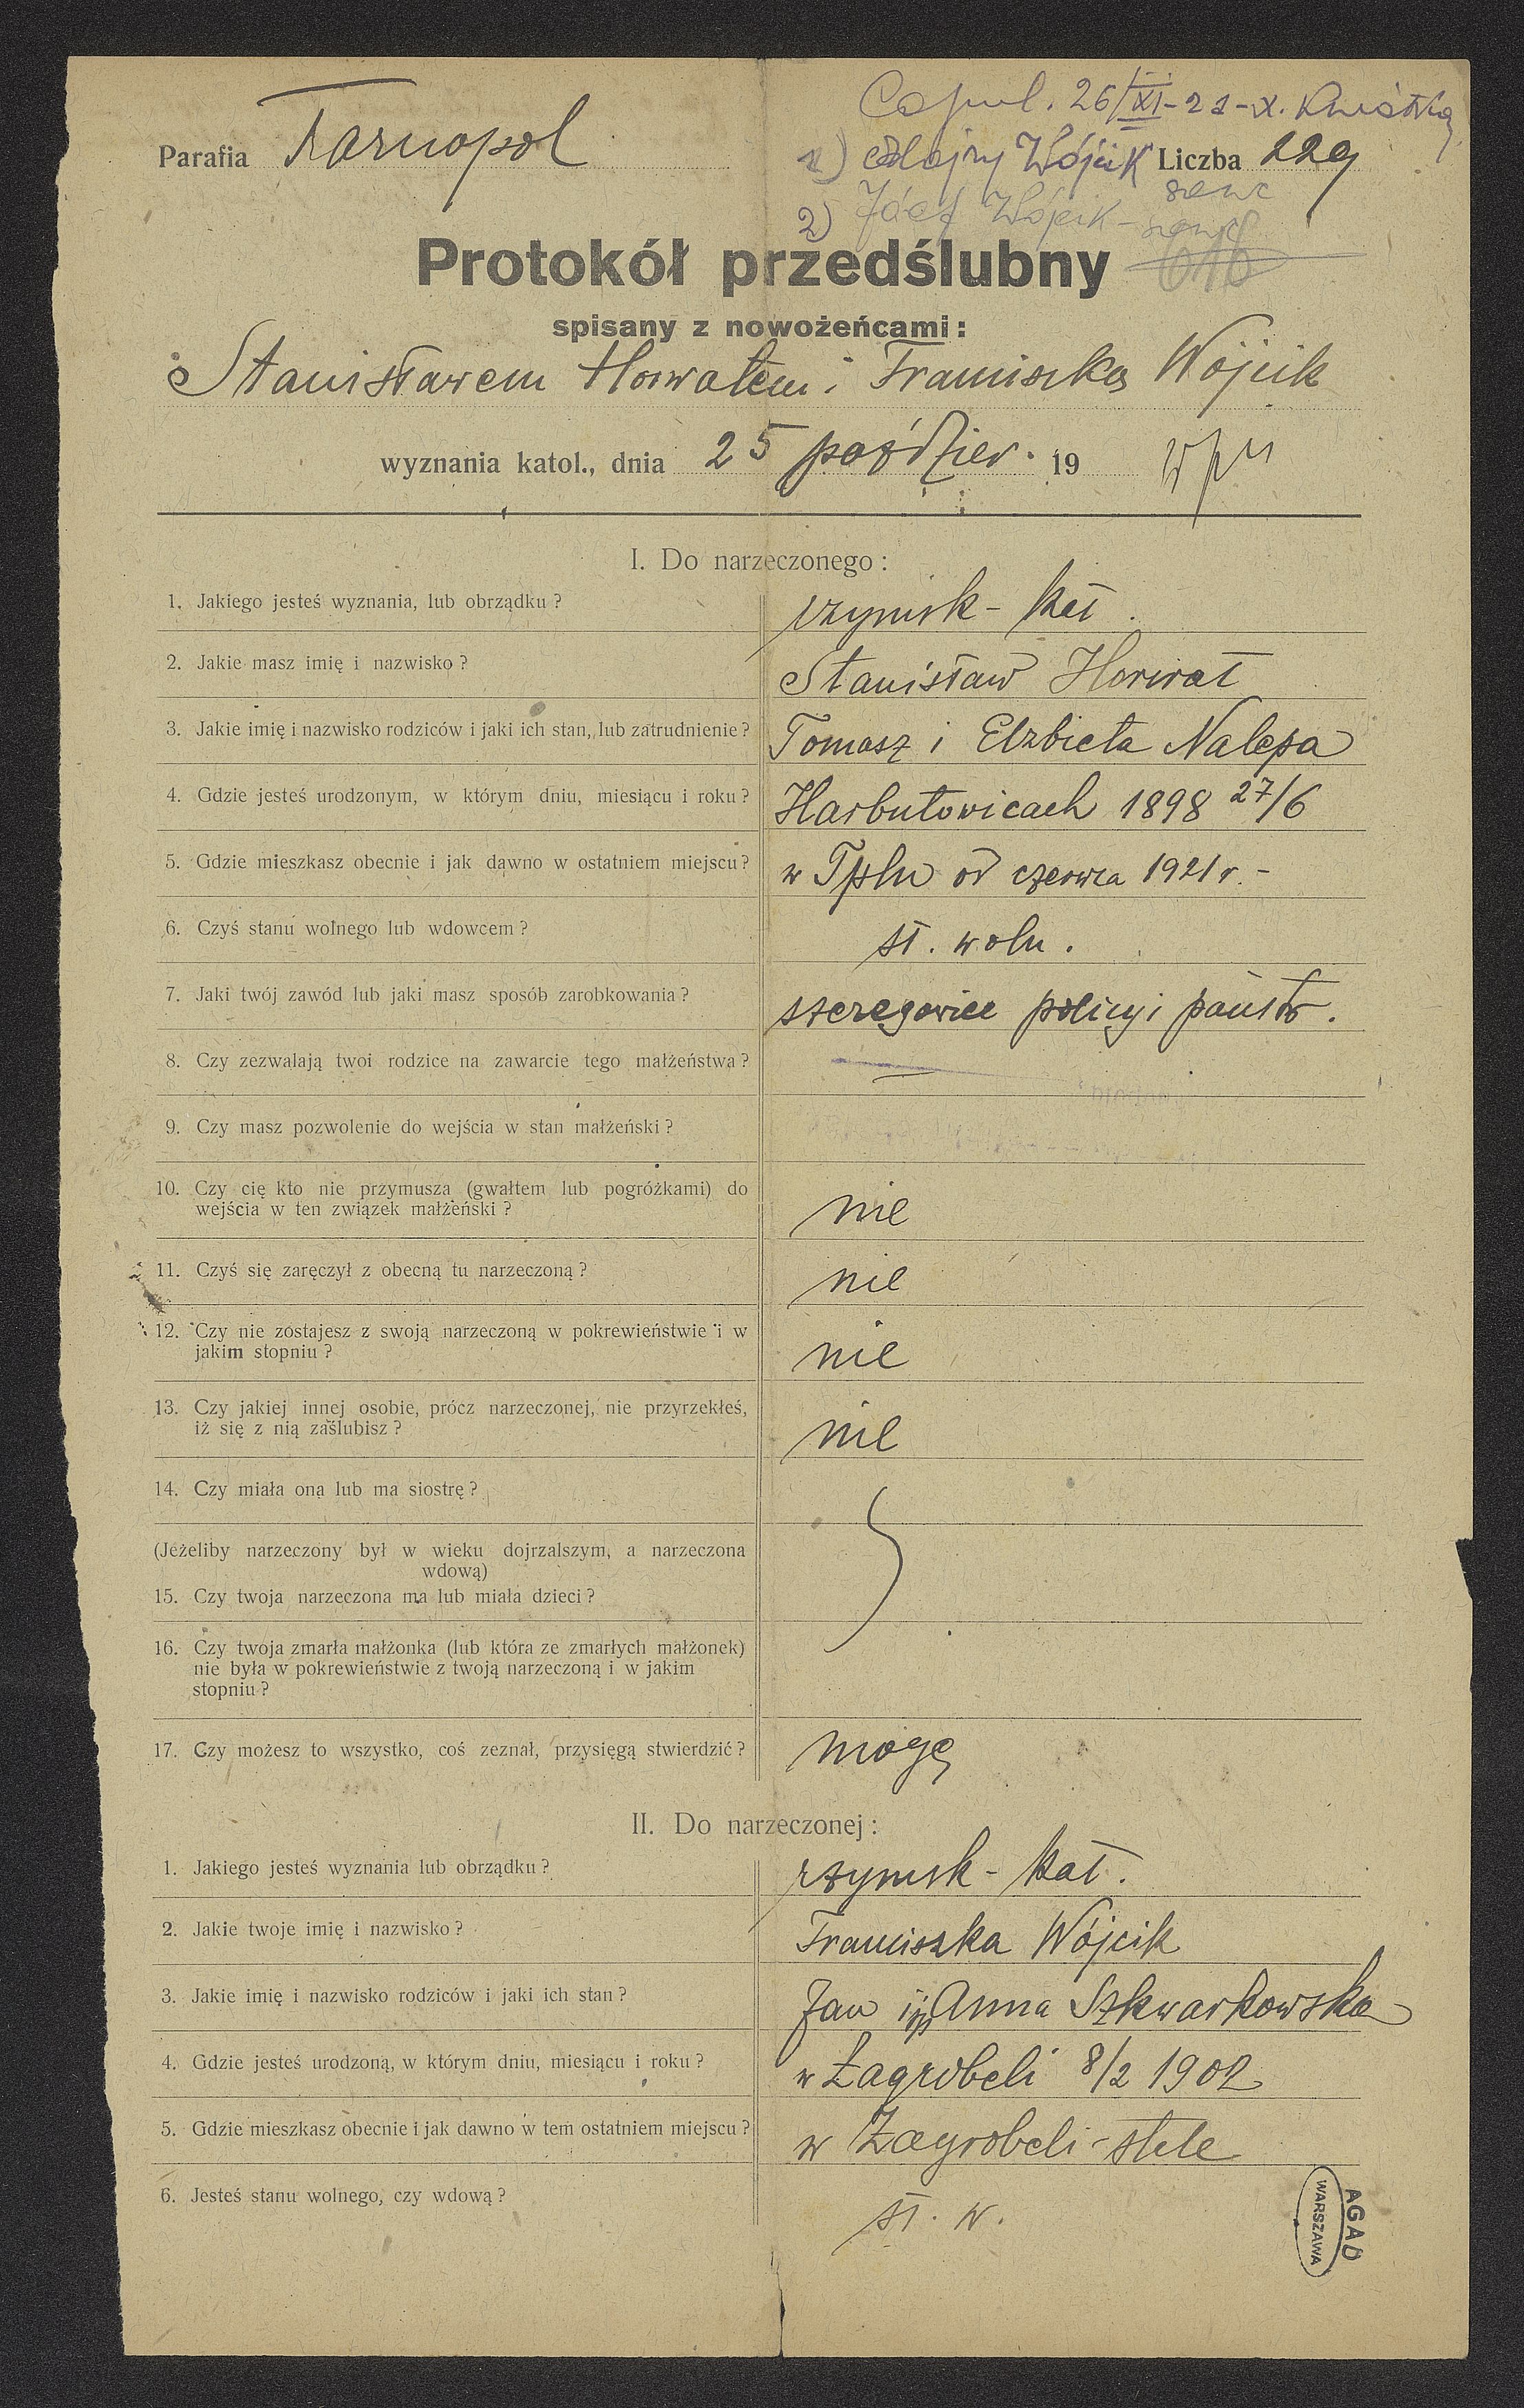 Copul. 26/XI-21-X.
Parafia Tarnopol
1) Wójcik Liczba 229
szewc
2) Józef Wójcik - szewc
Protokół przedślubny
616
spisany z nowożeńcami:
Stanisławem Horwatem i Franciszką Wójcik
wyznania katol., dnia 25 paździer. 19
I. Do narzeczonego:
1. Jakiego jesteś wyznania, lub obrządku? rzymsk - kat.
2. Jakie masz imię i nazwisko? Stanisław Horwat
3. Jakie imię i nazwisko rodziców i jaki ich stan, lub zatrudnienie? Tomasz i Elżbieta Nalepa
4. Gdzie jesteś urodzonym, w którym dniu, miesiącu i roku? Harbutowicach 1898 27/6
5. Gdzie mieszkasz obecnie i jak dawno w ostatniem miejscu? w Tplu od czerwca 1921 r. -
6. Czyś stanu wolnego lub wdowcem? st. woln.
7. Jaki twój zawód lub jaki masz sposób zarobkowania? szeregowiec policyi państw.
8. Czy zezwalają twoi rodzice na zawarcie tego małżeństwa? —
9. Czy masz pozwolenie do wejścia w stan małżeński?
10. Czy cię kto nie przymusza (gwałtem lub pogróżkami) do
wejścia w ten związek małżeński? nie
11. Czyś się zaręczył z obecną tu narzeczoną? nie
12. Czy nie zostajesz z swoją narzeczoną w pokrewieństwie i w
jakim stopniu? nie
13. Czy jakiej innej osobie, prócz narzeczonej, nie przyrzekłeś,
iż się z nią zaślubisz? nie
14. Czy miała ona lub ma siostrę?
(Jeżeliby narzeczony był w wieku dojrzalszym, a narzeczona
wdową)
15. Czy twoja narzeczona ma lub miała dzieci?
16. Czy twoja zmarła małżonka (lub która ze zmarłych małżonek)
nie była w pokrewieństwie z twoją narzeczoną i w jakim
stopniu?
17. Czy możesz to wszystko, coś zeznał, przysięgą stwierdzić? mogę
II. Do narzeczonej:
1. Jakiego jesteś wyznania lub obrządku? rzymsk - kat.
2. Jakie twoje imię i nazwisko? Franciszka Wójcik
3. Jakie imię i nazwisko rodziców i jaki ich stan? Jan i Anna Szkwarkowska
4. Gdzie jesteś urodzoną, w którym dniu, miesiącu i roku? w Zagrobeli 8/2 1902
5. Gdzie mieszkasz obecnie i jak dawno w tem ostatniem miejscu? w Zagrobeli - stele
6. Jesteś stanu wolnego, czy wdową? st. w.
AGAD
WARSZAWA